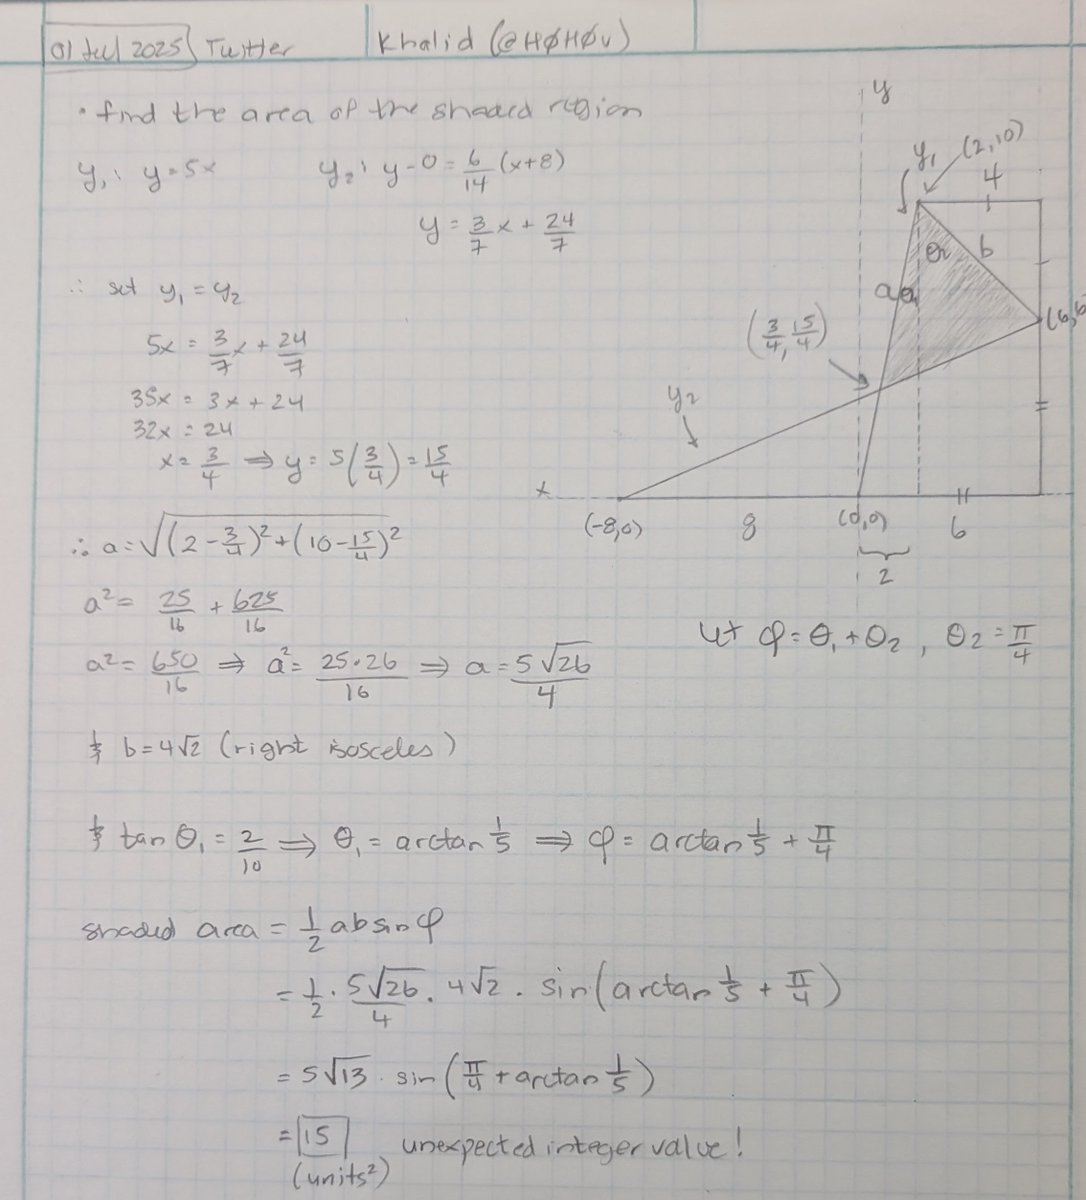 01 Jul 2025 Twitter Khalid (@HØHØv)
• find the area of the shaded region
y₁: y=5x y₂: y-0 = 6/14 (x+8)
y = 3/7 x + 24/7
∴ set y₁ = y₂
5x = 3/7 x + 24/7
35x = 3x + 24
32x = 24
x = 3/4 ⇒ y = 5(3/4) = 15/4
∴ a = √((2 - 3/4)² + (10 - 15/4)²
a² = 25/16 + 625/16
a² = 650/16 ⇒ a² = 25·26/16 ⇒ a = 5√26/4
& b = 4√2 (right isosceles)
& tan θ₁ = 2/10 ⇒ θ₁ = arctan 1/5 ⇒ φ = arctan 1/5 + π/4
shaded area = 1/2 ab sin φ
= 1/2 · 5√26/4 · 4√2 · sin(arctan 1/5 + π/4)
= 5√13 · sin(π/4 + arctan 1/5)
= 15 unexpected integer value!
(units²)
y
y₁ (2,10)
4
b
a
(6,6
(3/4, 15/4)
y₂
x
(-8,0) 8 (0,0) 6
2
let φ = θ₁ + θ₂ , θ₂ = π/4